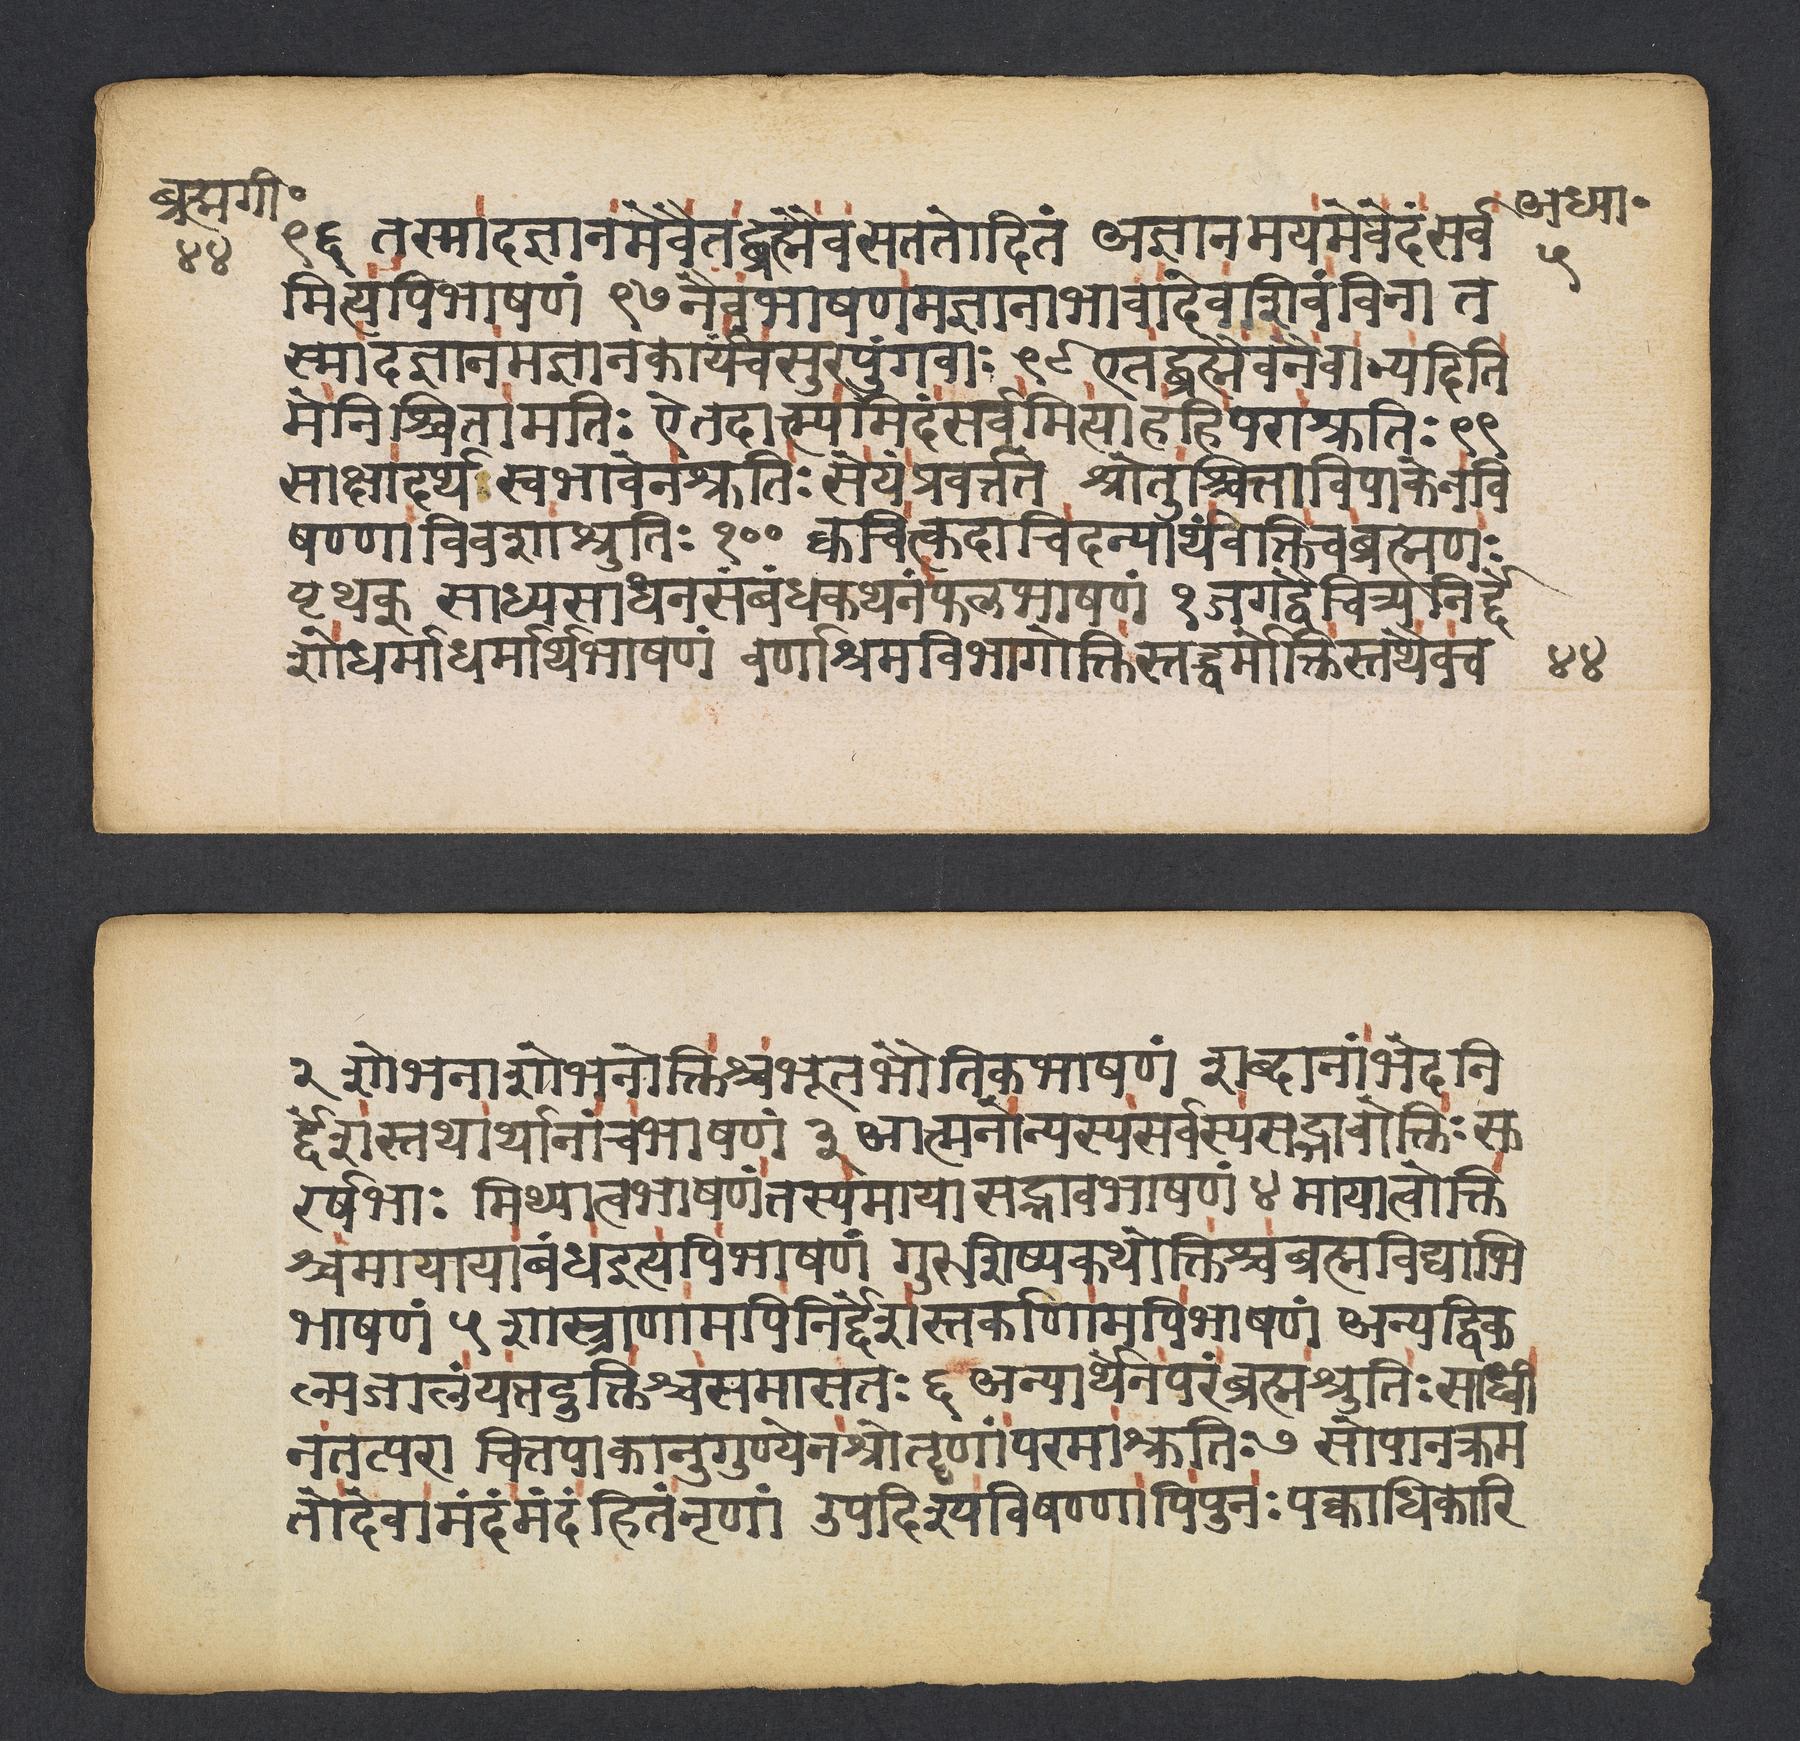 ब्रह्मगी॰
४४
अध्या॰
५
९६ तस्मादज्ञानमेवैतद्ब्रह्मैवसततोदितं अज्ञानमयमेवेदंसर्व
मित्यपिभाषणं ९७ नैवभाषणमज्ञानाभावादेवाशिवंविना त
स्मादज्ञानमज्ञानकार्यंचसुरपुंगवाः ९८ एतद्ब्रह्मैवनैवान्यदिति
मेनिश्चितामतिः ऐतदात्म्यमिदंसर्वमित्याहहिपराश्रुतिः ९९
साक्षादर्थस्वभावेनश्रुतिः सेयंप्रवर्त्तते श्रोतुश्चित्ताविपाकेनवि
षण्णाविवशाश्रुतिः १०० क्वचित्कदाचिदन्यार्थंवक्तिचब्रह्मणः
पृथक् साध्यसाधनसंबंधकथनंफलभाषणं १ जगद्वैचित्र्यनिर्द्दे
शोधर्माधर्मार्थभाषणं वर्णाश्रमविभागोक्तिस्तद्धर्मोक्तिस्तथैवच
४४
२ शोभनाशोभनोक्तिश्चभूतभौतिकभाषणं शब्दानांभेदनि
र्द्देशस्तथार्थानांचभाषणं ३ आत्मनोन्यस्यसर्वस्यसद्भावोक्तिः सु
रर्षभाः मिथ्यात्वभाषणंतस्यमायासद्भावभाषणं ४ मायात्वोक्ति
श्चमायायाबंधइत्यपिभाषणं गुरुशिष्यकथोक्तिश्चब्रह्मविद्याभि
भाषणं ५ शास्त्राणामपिनिर्द्देशस्तर्काणामपिभाषणं अन्यद्विक
ल्पजालंयत्तदुक्तिश्चसमासतः ६ अन्यार्थेनपरंब्रह्मश्रुतिः साध्वी
नतत्परा चित्तपाकानुगुण्येनश्रोतॄणांपरमाश्रुतिः ७ सोपानक्रम
तोदेवामंदंमंदंहितंनृणां उपदिश्यविषण्णापिपुनः पक्वाधिकारि